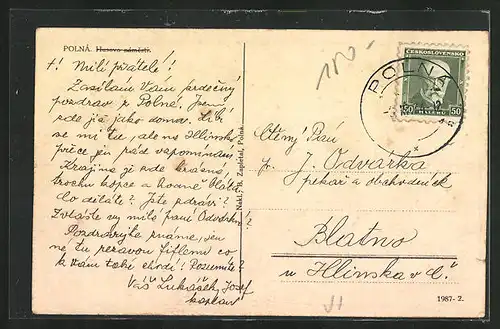 POLNÁ. Husovo náměstí.
t! Milí přátelé!
Zasílám Vám srdečný
pozdrav z Polné. Jsem
zde již jako doma. Líbí
se mi tu, ale na Hlinsko
přece jen rád vzpomínám.
Krajina je zde krásná,
trochu kopce a hodně bláta
Co děláte? Jste zdrávi?
Zvláště vy milá paní Odvárko
Pozdravujte známé, jen
ne tu
co
k Vám také chodí! Rozumíte?
Váš Lukášek Josef
kaplan
Nakl. B. Zapletal, Polná.
180-
ČESKOSLOVENSKO
50 50
POLNÁ
Ctěný Pán
p. J. Odvárka
pekař a obchodník
Blatno
u Hlinska v Č.
VI
1987-2.